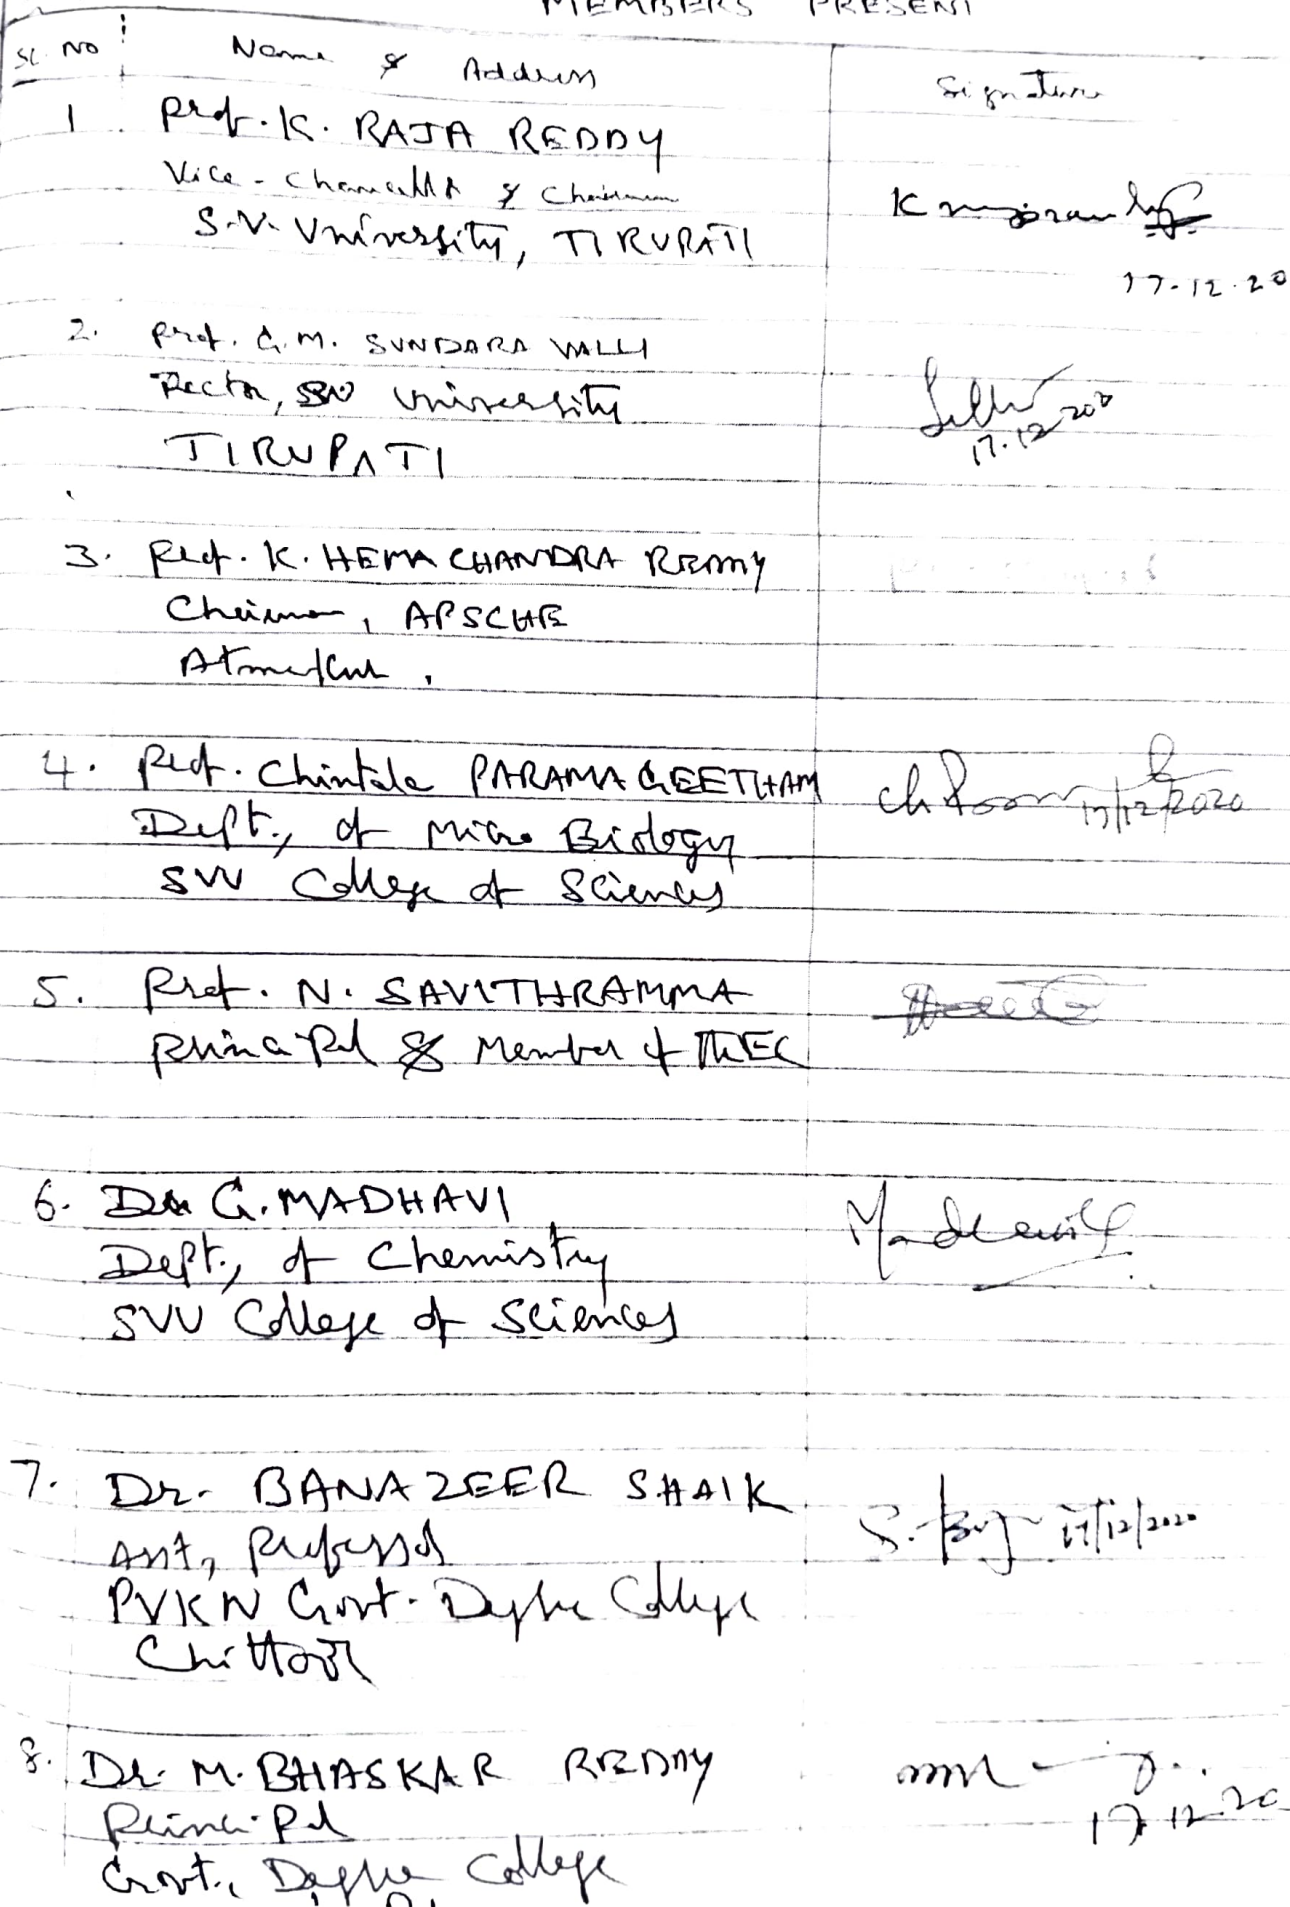 MEMBERS PRESENT
Sl. No Name & Address Signature
1 Prof. K. RAJA REDDY
Vice-Chancellor & Chairman
S.V. University, TIRUPATI
17-12-20
2. Prof. G.M. SUNDARA VALLI
Rector, SV University
TIRUPATI
17.12.2020
3. Prof. K. HEMA CHANDRA REDDY
Chairman, APSCHE
4. Prof. Chintala PARAMAGEETHAM
Dept., of Micro Biology
SVU College of Sciences
17/12/2020
5. Prof. N. SAVITHRAMMA
Principal & Member of the EC
6. Dr G. MADHAVI Madhavi G
Dept., of Chemistry
SVU College of Sciences
7. Dr. BANAZEER SHAIK
Asst, Professor 17/12/2020
PVKN Govt. Degree College
Chittoor
8. Dr. M. BHASKAR REDDY
Principal 17.12.20
Govt., Degree College